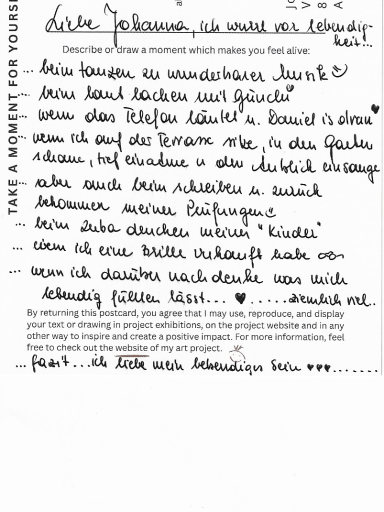 Liebe Johanna, ich wurre vor lebendig-
heit...
Describe or draw a moment which makes you feel alive:
... beim tanzen zu wunderbarer Musik
... beim laut lachen mit
... wenn das Telefon läutet u. Daniel is dran
... wenn ich auf der Terrasse sitze, in den Garten
schaue, tief einatme u den Anblick einsauge
... aber auch beim schreiben u. zurück
bekommen meiner Prüfungen
... beim zuba denchen meiner "Kinder"
... wenn ich eine Brille verkauft habe
... wenn ich darüber nachdenke was mich
lebendig fühlen lässt... ♥ ..... ziemlich viel.
By returning this postcard, you agree that I may use, reproduce, and display
your text or drawing in project exhibitions, on the project website and in any
other way to inspire and create a positive impact. For more information, feel
free to check out the website of my art project.
... fazit... ich liebe mein lebendiges Sein ♥♥♥.......
TAKE A MOMENT FOR YOURSE